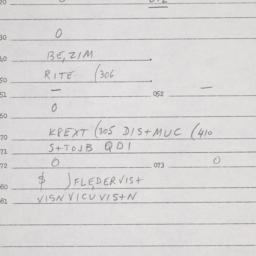 20 0
30 0
40 BE, ZIM
50 RITE (306
51 — 052 —
60 0
70 KPEXT (305 DIS+MUC (410
71 S+TOJB QDI
72 0 073 0
80 $ )FLEDERVIS+
81 VISNVICUVIS+N